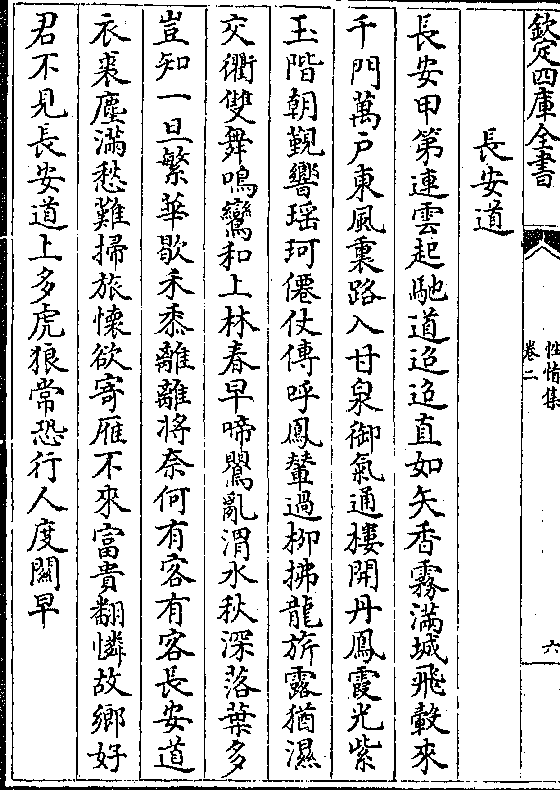 欽定四庫全書
性情集
卷二
六
長安道
長安甲第連雲起馳道迢迢直如矢香霧滿城飛轂來
千門萬戶東風裏路入甘泉御氣通樓開丹鳳霞光紫
玉階朝覲響瑶珂僊仗傳呼鳳輦過柳拂龍旂露猶濕
交衢雙舞鳴鸞和上林春早啼鶯亂渭水秋深落葉多
豈知一旦繁華歇禾黍離離將奈何有客有客長安道
衣裘塵滿愁難掃旅懷欲寄雁不來富貴翻憐故鄉好
君不見長安道上多虎狼常恐行人度關早